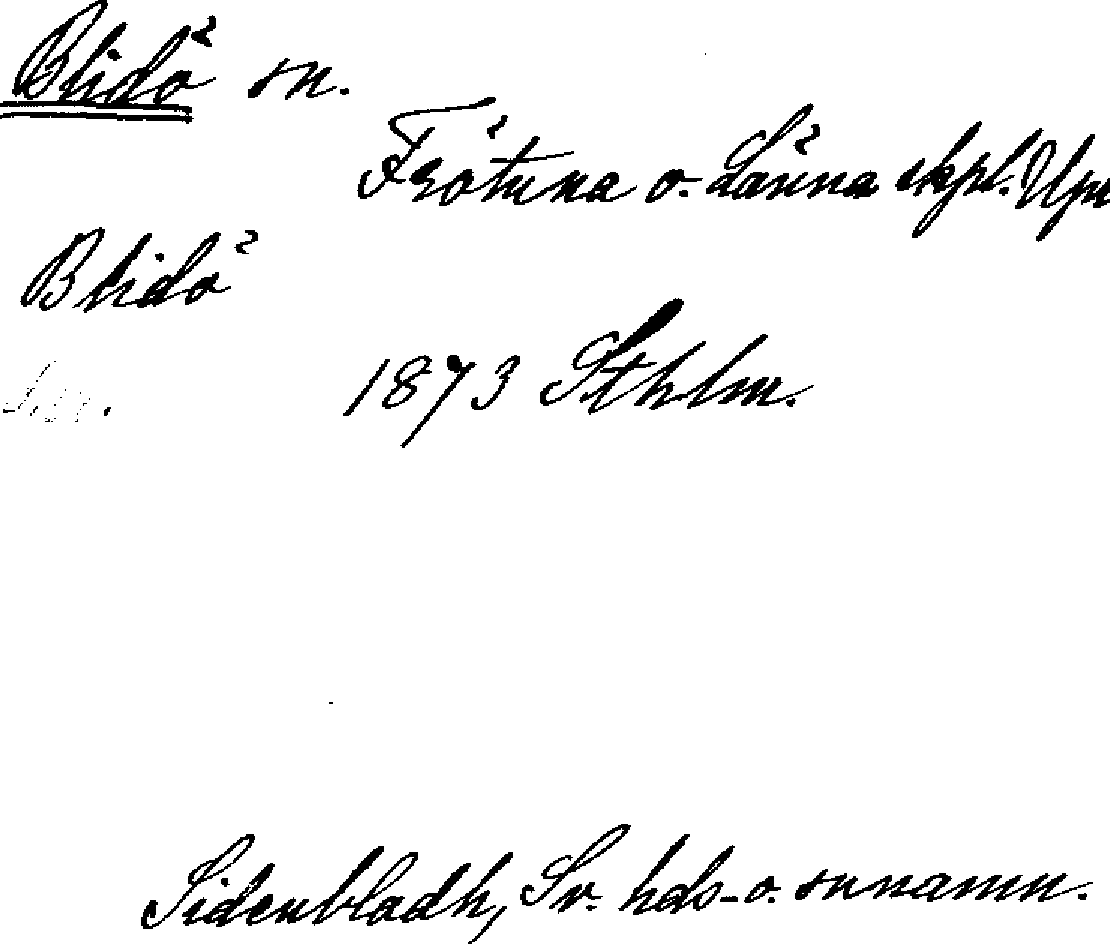 Blidö sn.
Frötuna o. Länna skpl. Upl
Blidö
1873 Sthlm.
Sidenbladh, Sv. hds- o. snnamn.